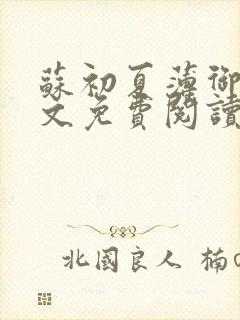 蘇初夏薄御
文免費閱讀
北國良人 楠